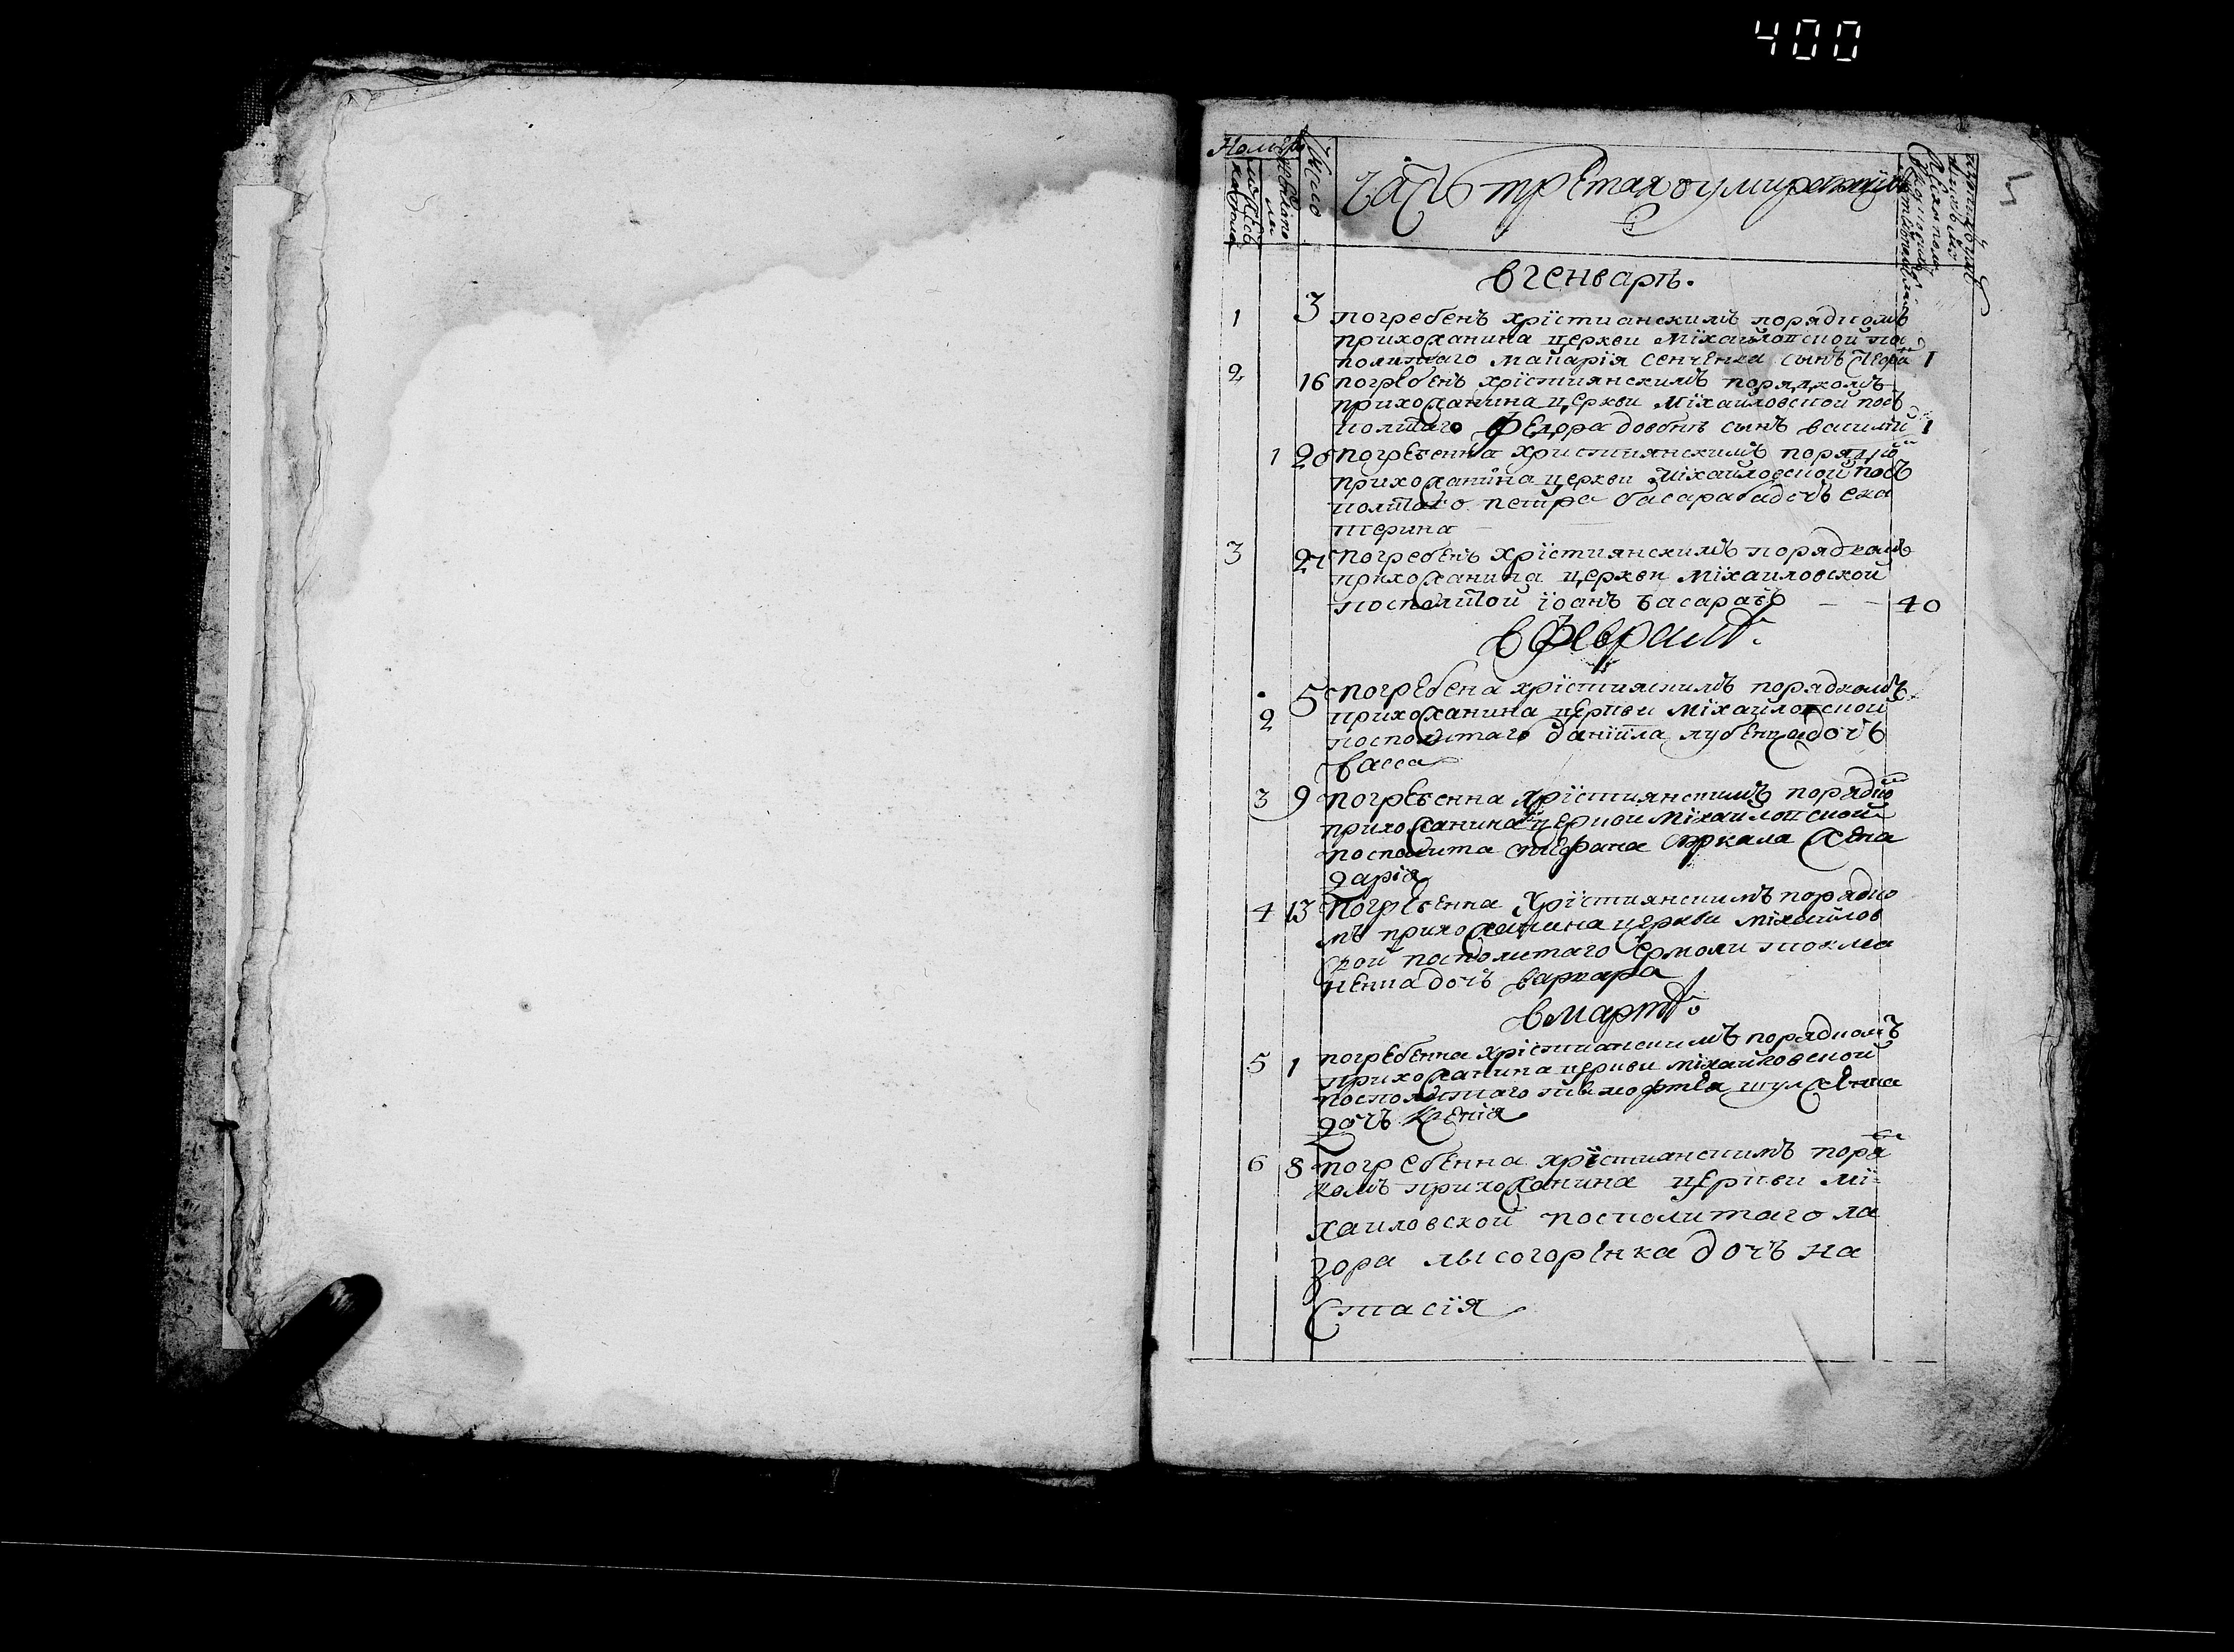 400
5
Номеръ
Число
часть третая оумирающихъ
вгенварѣ.
1 3 погребенъ хрїстианскимъ порядкомъ
прихожанина церкви Міхаиловской по
политаго макарія сенченка сынъ 1
2 16 погребенъ хрїстиянскимъ порядкомъ
прихожанина церкви Міхаиловской пос
политаго Федора довбнѣ сынъ василій 1
1 20 погребенна християнскимъ порядко
прихожанина церкви Міхаиловской пос
политаго петра басараба дочъ ека
терина
3 27 погребенъ хрїстиянскимъ порядкомъ
прихожанина церкви міхаиловской
посполитой іоанъ басарабъ 40
вфевралѣ.
5 погребена хрїстияскимъ порядкомъ
2 прихожанина церкви Міхаиловской
посполитаго даніила лубенца дочъ
васса
3 9 погребенна хрїстиянскимъ порядко
прихожанина церкви Міхаиловской
посполита стефана жена
дарія
4 13 Погребенна Хрїстиянскимъ порядко
мъ прихожанина церкви міхаилов
ской посполитаго Ермоли токма
ненка дочъ варвара
вмартѣ.
5 1 погребенна хрїстианскимъ порядкомъ
прихожанина церкви міхаиловской
посполитаго тимофтея шулженка
дочъ ксенія
6 8 погребенна хрїстианскимъ поря
комъ прихожанина церкви мі-
хаиловской посполитаго ла
зора лысогоренка дочъ на
стасїя